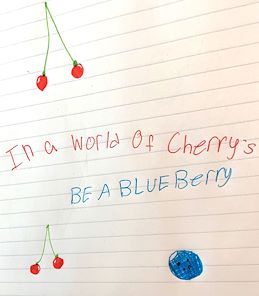 In a World Of Cherry's
BE A BLUEBerry